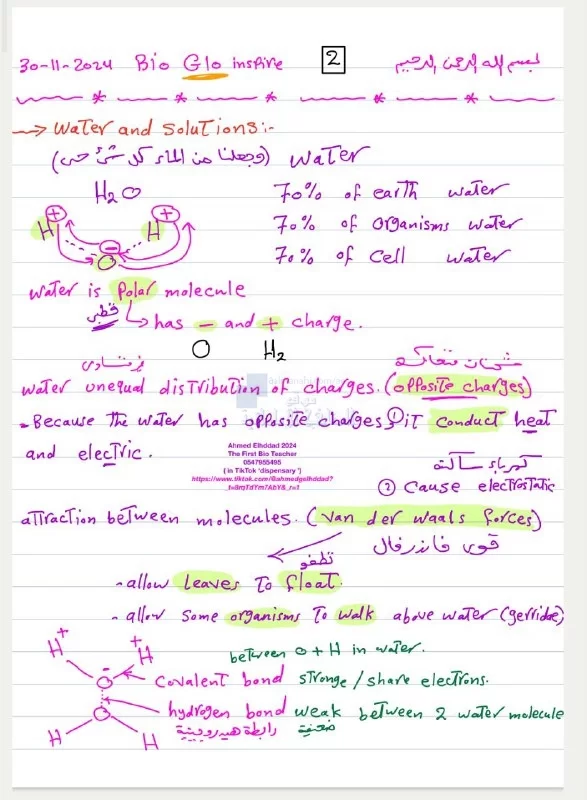 30-11-2024 Bio Glo inspire 2 بسم الله الرحمن الرحيم
→ Water and Solutions:-
(وجعلنا من الماء كل شئ حى) Water
H2O 70% of earth water
+ + 70% of organisms water
H - H
O 70% of cell water
Water is Polar molecule
قطبى has - and + charge.
O H2
شحنات متعاكسة
water unequal distribution of charges. (opposite charges)
- Because the water has opposite charges ① it conduct heat
and electric.
Ahmed Elhddad 2024
The First Bio Teacher
0547955495
( in TikTok 'dispensary )
https://www.tiktok.com/@ahmedgelhddad?
كهرباء ساكنة
② Cause electrostatic
attraction between molecules. (van der waals forces)
قوى فاندرفال
تطفو
- allow leaves to float.
- allow some organisms to walk above water (gerridae)
+ +
H H between O + H in water.
-
O covalent bond stronge / share electrons.
O hydrogen bond weak between 2 water molecule
H H رابطة هيدروجينية ضعيفة